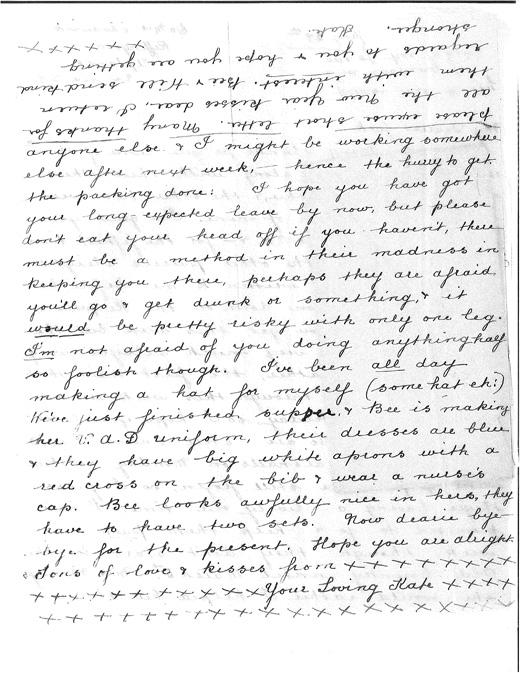 anyone else & I might be working somewhere
else after next week, — hence the hurry to get
the packing done: I hope you have got
your long-expected leave by now, but please
don't eat your head off if you haven't, there
must be a method in their madness in
keeping you there, perhaps they are afraid
you'll go & get drunk or something, & it
would be pretty risky with only one leg.
I'm not afraid of you doing anything half
so foolish though. I've been all day
making a hat for myself (some hat eh!)
We've just finished supper, & Bee is making
her V.A.D uniform, their dresses are blue
& they have big white aprons with a
red cross on the bib & wear a nurse's
cap. Bee looks awfully nice in hers, they
have to have two sets. Now dearie bye-
bye for the present. Hope you are alright.
Tons of love & kisses from x x x x x x x x
x x x x x x x x x x x Your Loving Kate x x x x
x x x x x x x x x x x x x x x x x x
Please excuse short letter. Many thanks for
all the New Year kisses dear, I return
them with interest. Bee & Hill send kind
regards to you & hope you are getting
stronger. Kate.
x x x x x x x